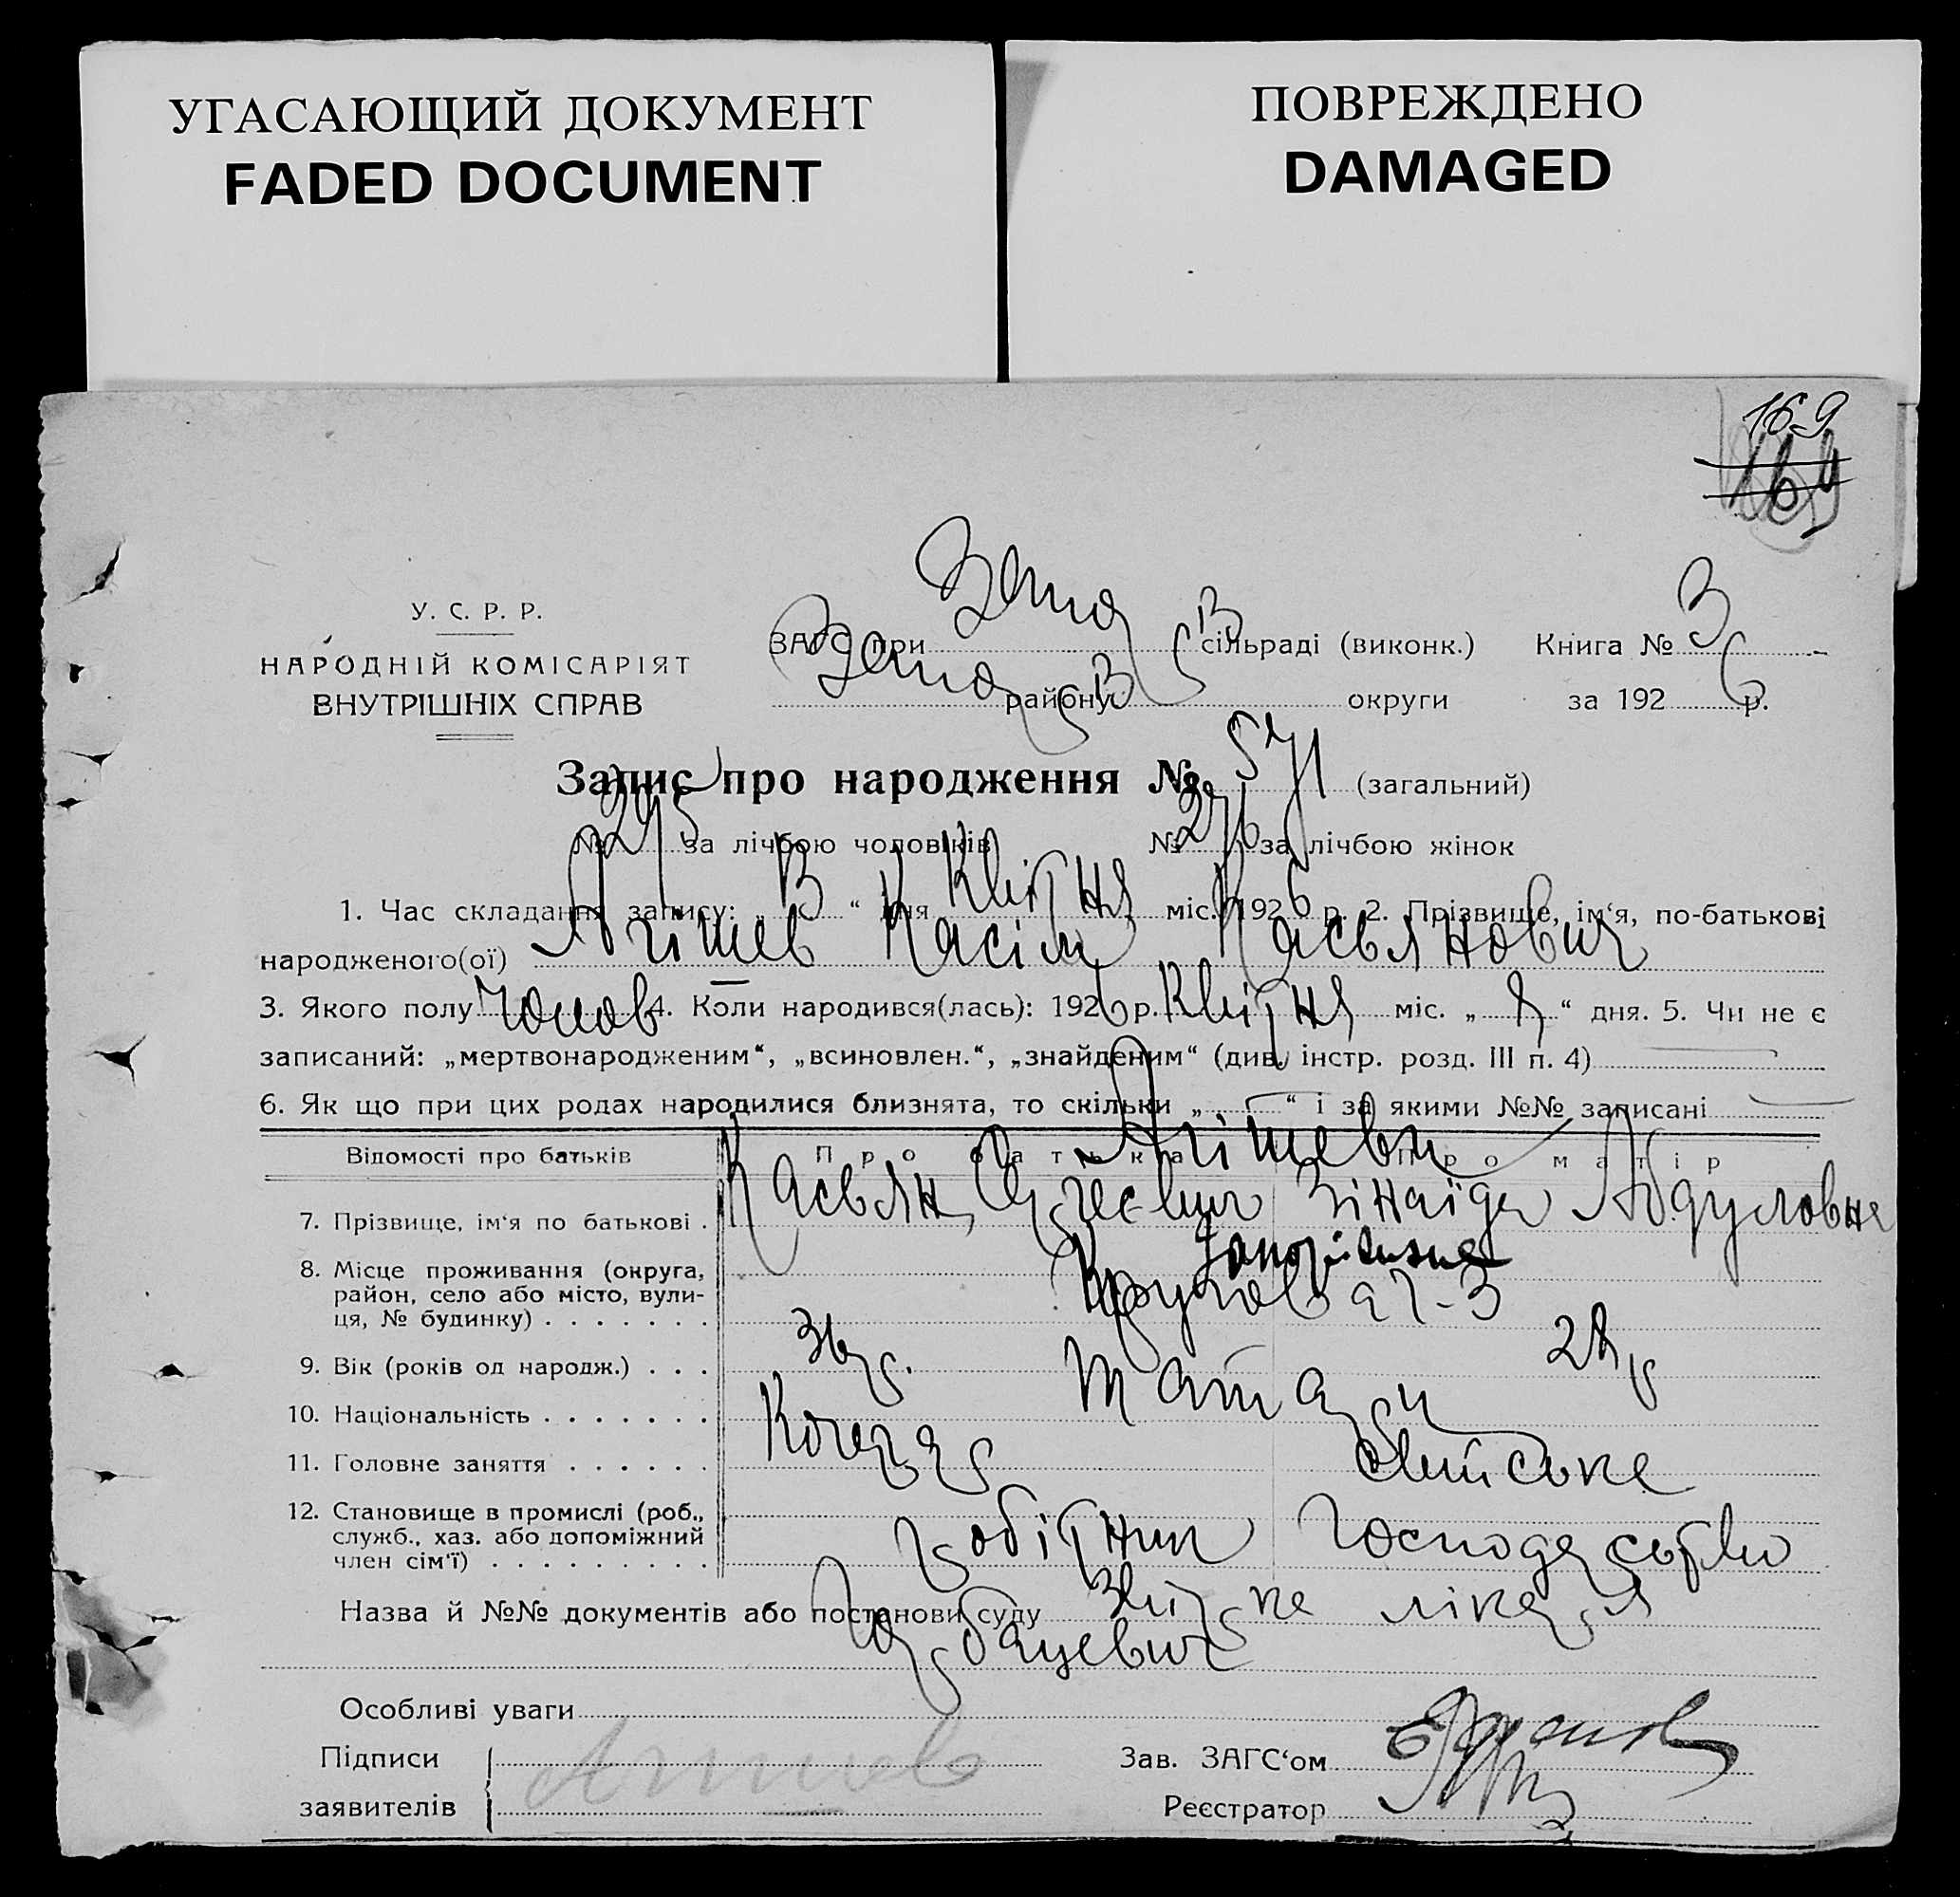 УГАСАЮЩИЙ ДОКУМЕНТ
FADED DOCUMENT
ПОВРЕЖДЕНО
DAMAGED
169
У. С. Р. Р.
НАРОДНІЙ КОМІСАРІЯТ
ВНУТРІШНІХ СПРАВ
ЗАГС при сільраді (виконк.) Книга № 3
району округи за 1926 р.
Запис про народження № 571 (загальний)
№ 295 за лічбою чоловіків № 276 за лічбою жінок
1. Час складання запису: „ 13 “ дня Квітня міс. 1926 р. 2. Прізвище, ім‘я, по-батькові
народженого(ої) Агішев Касім Касьянович
3. Якого полу Чолов 4. Коли народився(лась): 1926 р. Квітня міс. „ “ дня. 5. Чи не є
записаний: „мертвонародженим“, „всиновлен.“, „знайденим“ (див. інстр. розд. III п. 4)
6. Як що при цих родах народилися близнята, то скільки „ “ і за якими №№ записані
Відомості про батьків Про батька Про матір
Агішеви
7. Прізвище, ім‘я по батькові . Касьян Зінаїда Абдуловна
8. Місце проживання (округа,
район, село або місто, вули-
ця, № будинку) . . . . . . .
9. Вік (років од народж.) . . . 36 р. 28 р
10. Національність . . . . . . . Татари
11. Головне заняття . . . . . . Кочегар
12. Становище в промислі (роб.,
служб., хаз. або допоміжний
член сім‘ї) . . . . . . . . . робітник господарство
Назва й №№ документів або постанови суду лікаря
Особливі уваги
Підписи
заявителів Агишев
Зав. ЗАГС‘ом
Реєстратор